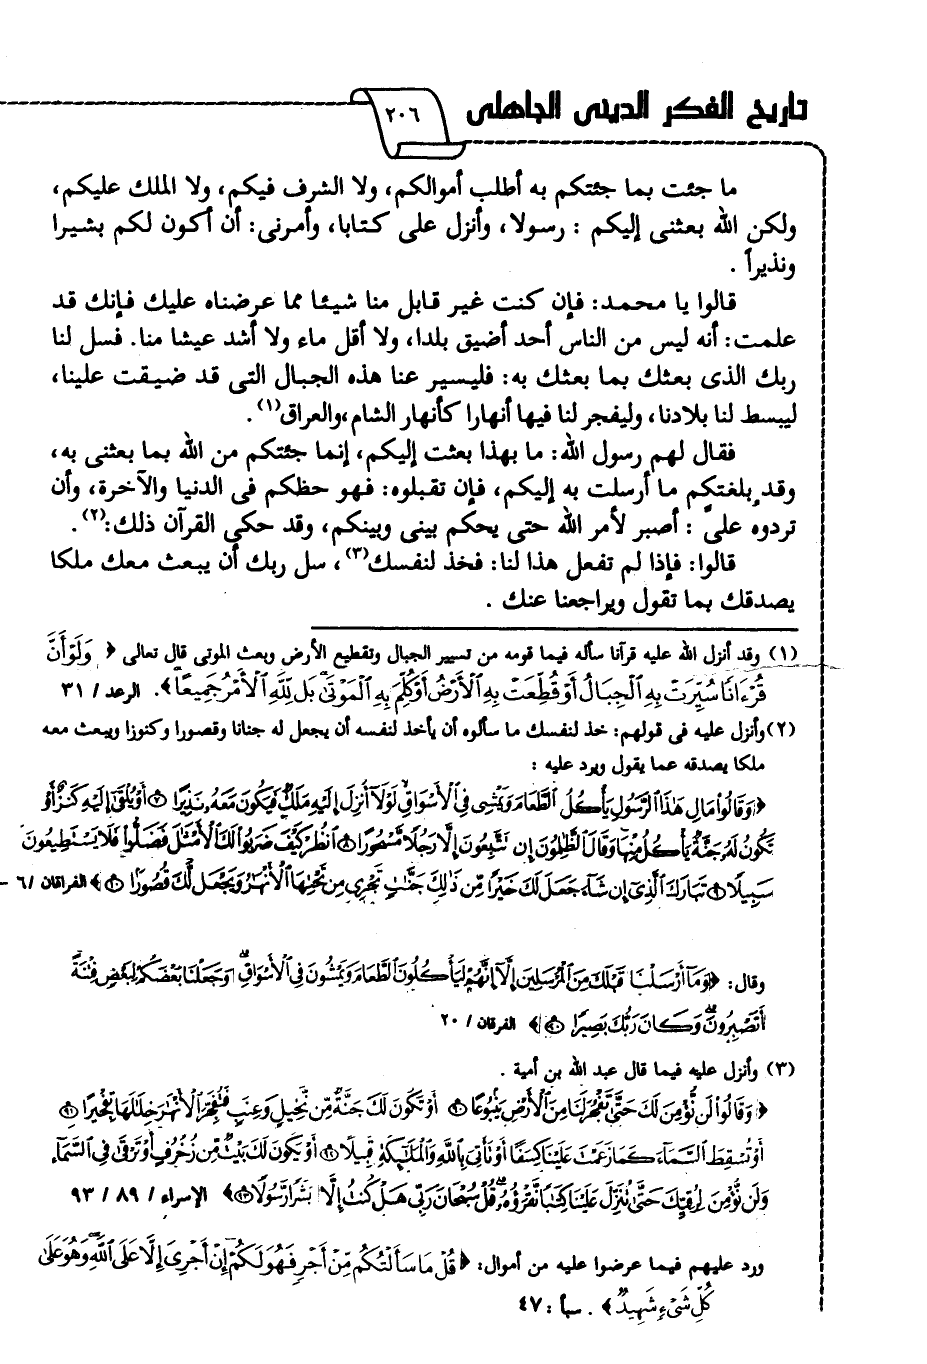 تاريخ الفكر الدينى الجاهلى
٢٠٦
ما جئت بما جئتكم به أطلب أموالكم، ولا الشرف فيكم، ولا الملك عليكم،
ولكن الله بعثنى إليكم : رسولا، وأنزل على كتابا، وأمرنى: أن أكون لكم بشيرا
ونذيراً .
قالوا يا محمد: فإن كنت غير قابل منا شيئا مما عرضناه عليك فإنك قد
علمت: أنه ليس من الناس أحد أضيق بلدا، ولا أقل ماء ولا أشد عيشا منا. فسل لنا
ربك الذى بعثك بما بعثك به: فليسير عنا هذه الجبال التى قد ضيقت علينا،
ليبسط لنا بلادنا، وليفجر لنا فيها أنهارا كأنهار الشام،والعراق(١).
فقال لهم رسول الله: ما بهذا بعثت إليكم، إنما جئتكم من الله بما بعثنى به،
وقد بلغتكم ما أرسلت به إليكم، فإن تقبلوه: فهو حظكم فى الدنيا والآخرة، وأن
تردوه علىّ : أصبر لأمر الله حتى يحكم بينى وبينكم، وقد حكى القرآن ذلك:(٢).
قالوا: فإذا لم تفعل هذا لنا: فخذ لنفسك(٣)، سل ربك أن يبعث معك ملكا
يصدقك بما تقول ويراجعنا عنك .
(١) وقد أنزل الله عليه قرآنا سأله فيما قومه من تسيير الجبال وتقطيع الأرض وبعث الموتى قال تعالى ﴿ وَلَوْ أَنَّ
قُرْءَانًا سُيِّرَتْ بِهِ ٱلْجِبَالُ أَوْ قُطِّعَتْ بِهِ ٱلْأَرْضُ أَوْ كُلِّمَ بِهِ ٱلْمَوْتَىٰ بَل لِّلَّهِ ٱلْأَمْرُ جَمِيعًا ﴾. الرعد / ٣١
(٢) وأنزل عليه فى قولهم: خذ لنفسك ما سألوه أن يأخذ لنفسه أن يجعل له جنانا وقصورا وكنوزا ويبعث معه
ملكا يصدقه عما يقول ويرد عليه :
﴿وَقَالُوا۟ مَالِ هَـٰذَا ٱلرَّسُولِ يَأْكُلُ ٱلطَّعَامَ وَيَمْشِى فِى ٱلْأَسْوَاقِ لَوْلَآ أُنزِلَ إِلَيْهِ مَلَكٌ فَيَكُونَ مَعَهُۥ نَذِيرًا ﴿٧﴾ أَوْ يُلْقَىٰٓ إِلَيْهِ كَنزٌ أَوْ
تَكُونُ لَهُۥ جَنَّةٌ يَأْكُلُ مِنْهَا وَقَالَ ٱلظَّـٰلِمُونَ إِن تَتَّبِعُونَ إِلَّا رَجُلًا مَّسْحُورًا ﴿٨﴾ ٱنظُرْ كَيْفَ ضَرَبُوا۟ لَكَ ٱلْأَمْثَـٰلَ فَضَلُّوا۟ فَلَا يَسْتَطِيعُونَ
سَبِيلًا ﴿٩﴾ تَبَارَكَ ٱلَّذِىٓ إِن شَآءَ جَعَلَ لَكَ خَيْرًا مِّن ذَٰلِكَ جَنَّـٰتٍ تَجْرِى مِن تَحْتِهَا ٱلْأَنْهَـٰرُ وَيَجْعَل لَّكَ قُصُورًۢا ﴿١٠﴾﴾ الفراقان /٦ -
وقال: ﴿وَمَآ أَرْسَلْنَا قَبْلَكَ مِنَ ٱلْمُرْسَلِينَ إِلَّآ إِنَّهُمْ لَيَأْكُلُونَ ٱلطَّعَامَ وَيَمْشُونَ فِى ٱلْأَسْوَاقِ ۗ وَجَعَلْنَا بَعْضَكُمْ لِبَعْضٍ فِتْنَةً
أَتَصْبِرُونَ ۗ وَكَانَ رَبُّكَ بَصِيرًا ﴿٢٠﴾﴾ الفرقان / ٢٠
(٣) وأنزل عليه فيما قال عبد الله بن أمية .
﴿وَقَالُوا۟ لَن نُّؤْمِنَ لَكَ حَتَّىٰ تَفْجُرَ لَنَا مِنَ ٱلْأَرْضِ يَنۢبُوعًا ﴿٩٠﴾ أَوْ تَكُونَ لَكَ جَنَّةٌ مِّن نَّخِيلٍ وَعِنَبٍ فَتُفَجِّرَ ٱلْأَنْهَـٰرَ خِلَـٰلَهَا تَفْجِيرًا ﴿٩١﴾
أَوْ تُسْقِطَ ٱلسَّمَآءَ كَمَا زَعَمْتَ عَلَيْنَا كِسَفًا أَوْ تَأْتِىَ بِٱللَّهِ وَٱلْمَلَـٰٓئِكَةِ قَبِيلًا ﴿٩٢﴾ أَوْ يَكُونَ لَكَ بَيْتٌ مِّن زُخْرُفٍ أَوْ تَرْقَىٰ فِى ٱلسَّمَآءِ
وَلَن نُّؤْمِنَ لِرُقِيِّكَ حَتَّىٰ تُنَزِّلَ عَلَيْنَا كِتَـٰبًا نَّقْرَؤُهُۥ ۗ قُلْ سُبْحَانَ رَبِّى هَلْ كُنتُ إِلَّا بَشَرًا رَّسُولًا ﴿٩٣﴾﴾ الإسراء / ٨٩ / ٩٣
ورد عليهم فيما عرضوا عليه من أموال: ﴿ قُلْ مَا سَأَلْتُكُم مِّنْ أَجْرٍ فَهُوَ لَكُمْ ۖ إِنْ أَجْرِىَ إِلَّا عَلَى ٱللَّهِ ۖ وَهُوَ عَلَىٰ
كُلِّ شَىْءٍ شَهِيدٌ ﴾ . سبأ : ٤٧